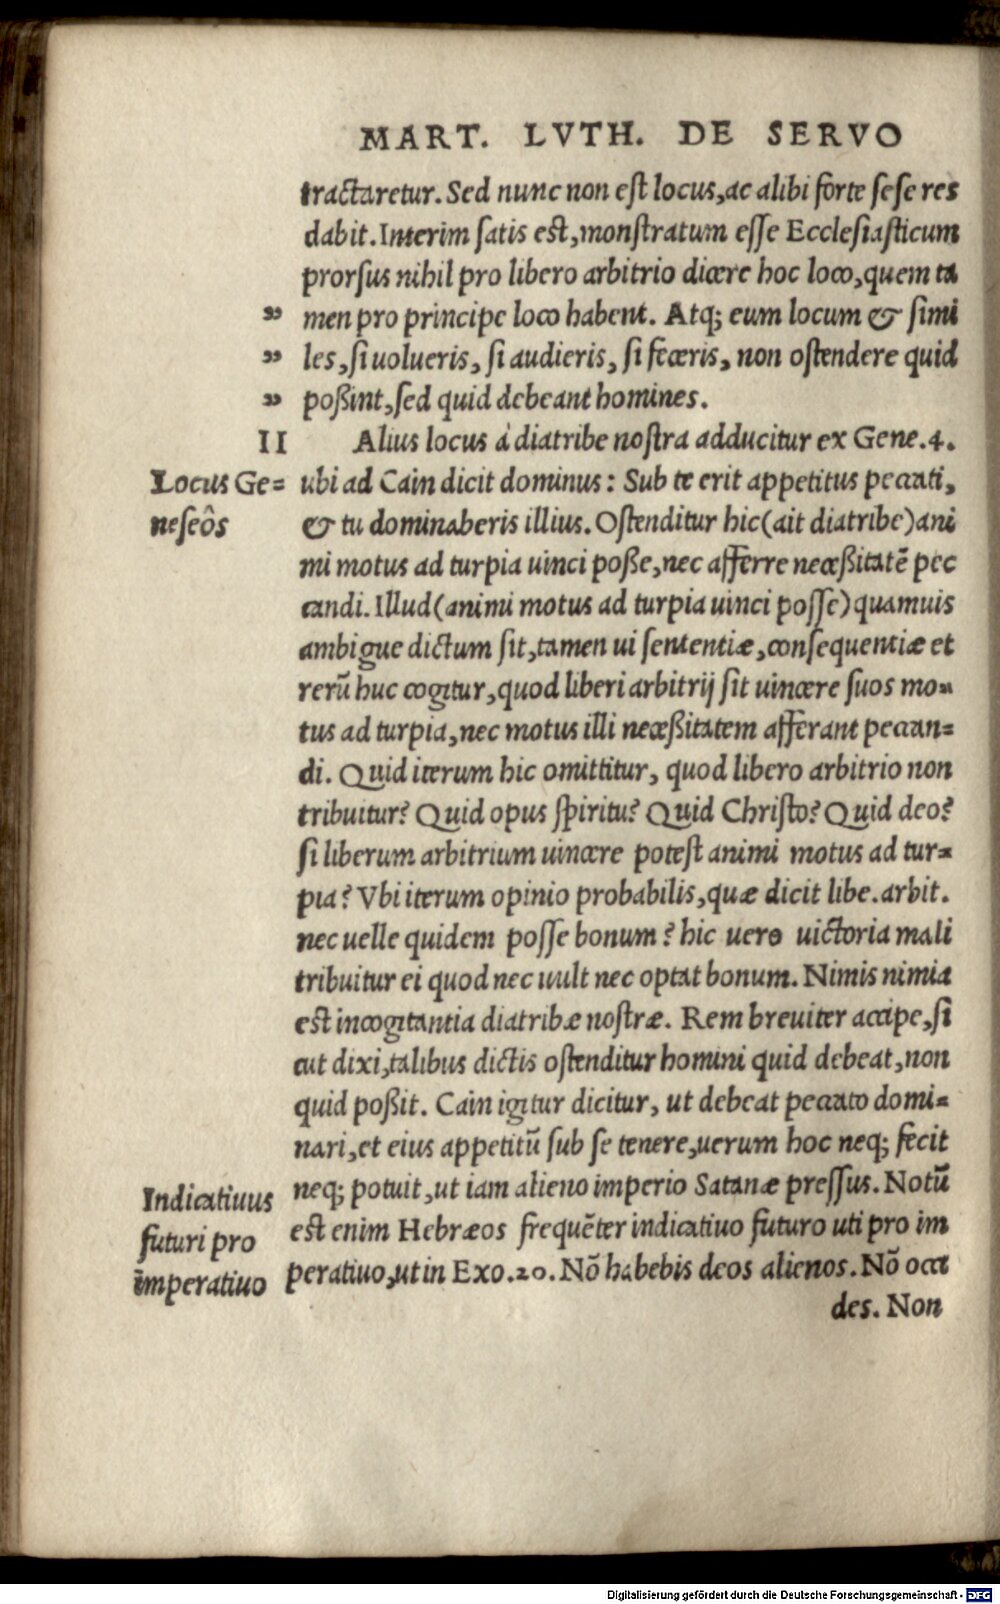 MART. LVTH. DE SERVO
tractaretur. Sed nunc non est locus, ac alibi forte sese res
dabit. Interim satis est, monstratum esse Ecclesiasticum
prorsus nihil pro libero arbitrio dicere hoc loco, quem ta
„ men pro principe loco habent. Atq; eum locum & simi
„ les, si uolueris, si audieris, si feceris, non ostendere quid
„ poßint, sed quid debeant homines.
II Alius locus à diatribe nostra adducitur ex Gene. 4.
Locus Ge=
neseôs
ubi ad Cain dicit dominus: Sub te erit appetitus peccati,
& tu dominaberis illius. Ostenditur hic (ait diatribe) ani
mi motus ad turpia uinci poße, nec afferre neceßitatē pec
candi. Illud (animi motus ad turpia uinci posse) quamuis
ambigue dictum sit, tamen ui sententiæ, consequentiæ et
rerū huc cogitur, quod liberi arbitrij sit uincere suos mo=
tus ad turpia, nec motus illi neceßitatem afferant peccan=
di. Quid iterum hic omittitur, quod libero arbitrio non
tribuitur? Quid opus spiritu? Quid Christo? Quid deo?
si liberum arbitrium uincere potest animi motus ad tur=
pia? Vbi iterum opinio probabilis, quæ dicit libe. arbit.
nec uelle quidem posse bonum? hic uero uictoria mali
tribuitur ei quod nec uult nec optat bonum. Nimis nimia
est incogitantia diatribæ nostræ. Rem breuiter accipe, si
cut dixi, talibus dictis ostenditur homini quid debeat, non
quid poßit. Cain igitur dicitur, ut debeat peccato domi=
nari, et eius appetitū sub se tenere, uerum hoc neq; fecit
neq; potuit, ut iam alieno imperio Satanæ pressus. Notū
est enim Hebræos frequēter indicatiuo futuro uti pro im
peratiuo, ut in Exo. 20. Nō habebis deos alienos. Nō occi
Indicatiuus
futuri pro
īmperatiuo
des. Non
Digitalisierung gefördert durch die Deutsche Forschungsgemeinschaft - DFG